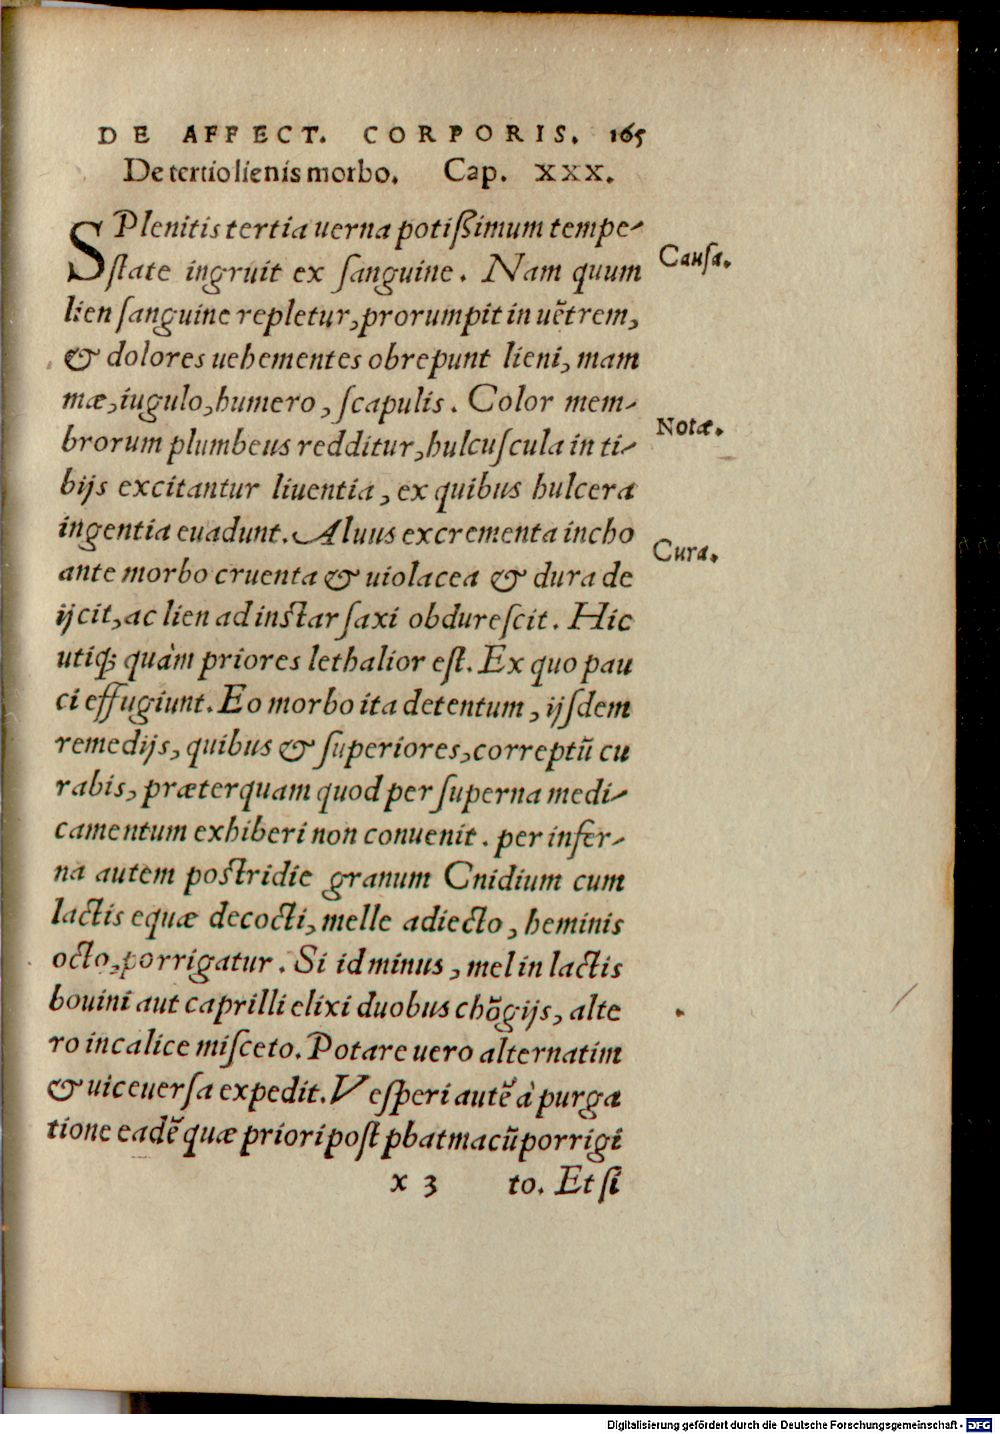 DE AFFECT. CORPORIS. 165
De tertio lienis morbo. Cap. XXX.
SPlenitis tertia uerna potißimum tempe-
state ingruit ex sanguine. Nam quum
Causa.
lien sanguine repletur, prorumpit in uẽtrem,
& dolores uehementes obrepunt lieni, mam
mæ, iugulo, humero, scapulis. Color mem-
Notæ.
brorum plumbeus redditur, hulcuscula in ti-
bijs excitantur liuentia, ex quibus hulcera
ingentia euadunt. Aluus excrementa incho
Cura.
ante morbo cruenta & uiolacea & dura de
ijcit, ac lien ad instar saxi obdurescit. Hic
utiq; quàm priores lethalior est. Ex quo pau
ci effugiunt. Eo morbo ita detentum, ijsdem
remedijs, quibus & superiores, correptũ cu
rabis, præterquam quod per superna medi-
camentum exhiberi non conuenit. per infer-
na autem postridie granum Cnidium cum
lactis equæ decocti, melle adiecto, heminis
octo, porrigatur. Si id minus, mel in lactis
bouini aut caprilli elixi duobus chõgijs, alte
ro in calice misceto. Potare uero alternatim
& uice uersa expedit. Vesperi autẽ à purga
tione eadẽ quæ priori post pbatmacũ porrigi
x 3 to. Et si
Digitalisierung gefördert durch die Deutsche Forschungsgemeinschaft - DFG